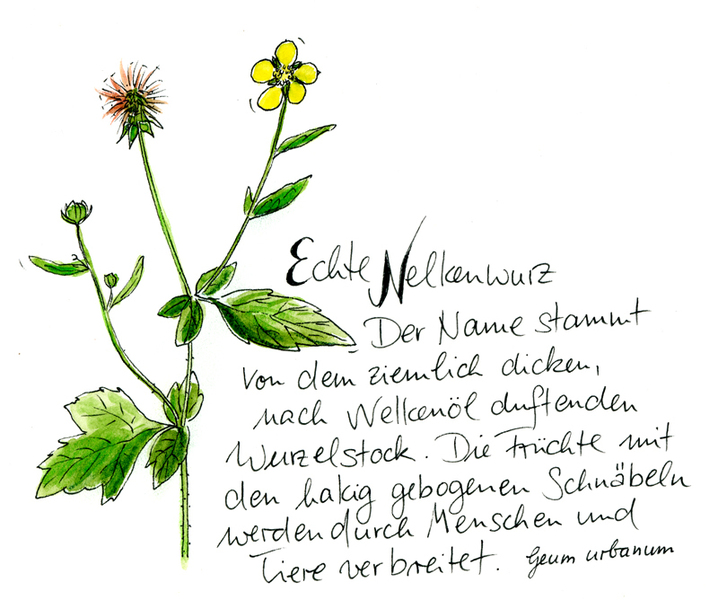 Echte Nelkenwurz
Der Name stammt
von dem ziemlich dicken,
nach Nelkenöl duftenden
Wurzelstock. Die Früchte mit
den hakig gebogenen Schnäbeln
werden durch Menschen und
Tiere verbreitet. Geum urbanum